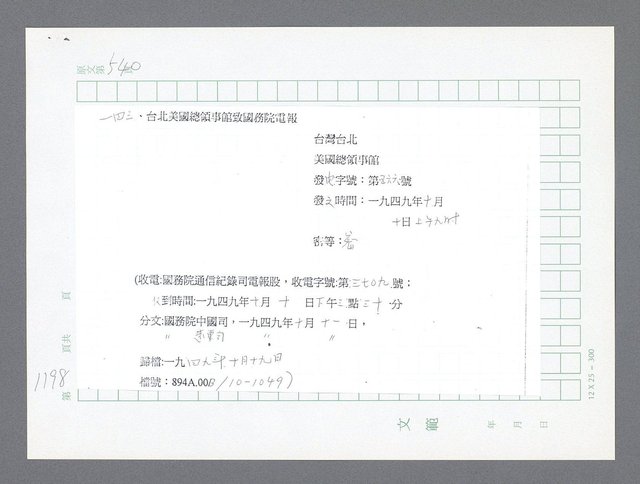 原文第540頁
一四三、台北美國總領事館致國務院電報
台灣台北
美國總領事館
發電字號：第五六六號
發文時間：一九四九年十月
十日上午九時
密等：密
(收電:國務院通信紀錄司電報股，收電字號:第三七0九號：
收到時間:一九四九年十月十日下午三點三十分
分文:國務院中國司，一九四九年十月十一日，
〃 〃 〃
歸檔:一九四九年十月十九日
檔號：894A.00B/10-1049)
頁共 頁
第1198
12 X 25 = 300
文範 年 月 日